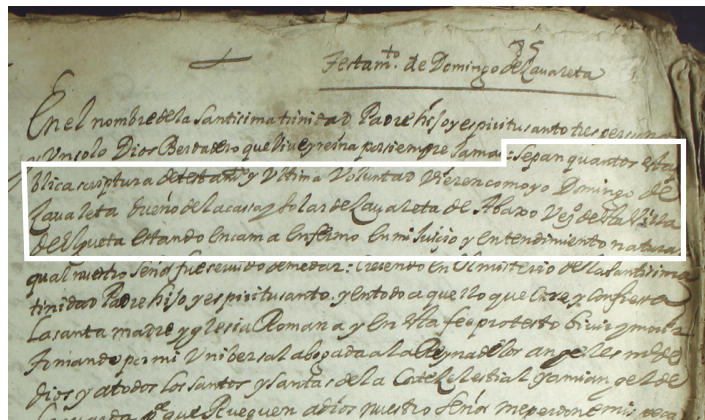 75
Testamto. de Domingo de Lavareta
En el nombre de la santisima trinidad Padre hijo y espiritu santo tres personas
y Un solo Dios Berdadero que Vive y reina por siempre Jamas: Sepan quantos esta
blica scriptura de testamto y Ultima Voluntad Vieren como yo Domingo de
Lavareta dueño de la cassa y solar de Lavareta de Abaxo Vezo de sta Villa
de Elgueta estando en cama enfermo En mi Juicio y entendimiento natural
qual nuestro Señor fue seruido de me dar: Creiendo En El misterio de la santisima
trinidad Padre hijo y espiritu santo. y en todo aquello que Cree y Confiessa
La santa madre yglesia Romana y En sta fee protesto biuir y morir
Tomando por mi Unibersal abogada a la Reyna de los angeles me de
dios y a todos los santos y santas de la Corte Celestial y a mi angel de
que Rueguen a dios nuestro Señor me perdone mis